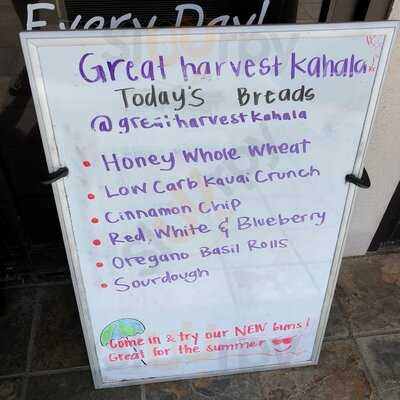 Every Day!
Great harvest Kahala
Today's Breads
@greatharvestkahala
Honey Whole Wheat
Low Carb Kauai Crunch
Cinnamon Chip
Red, White & Blueberry
Oregano Basil Rolls
Sourdough
Come in & try our NEW buns!
Great for the summer